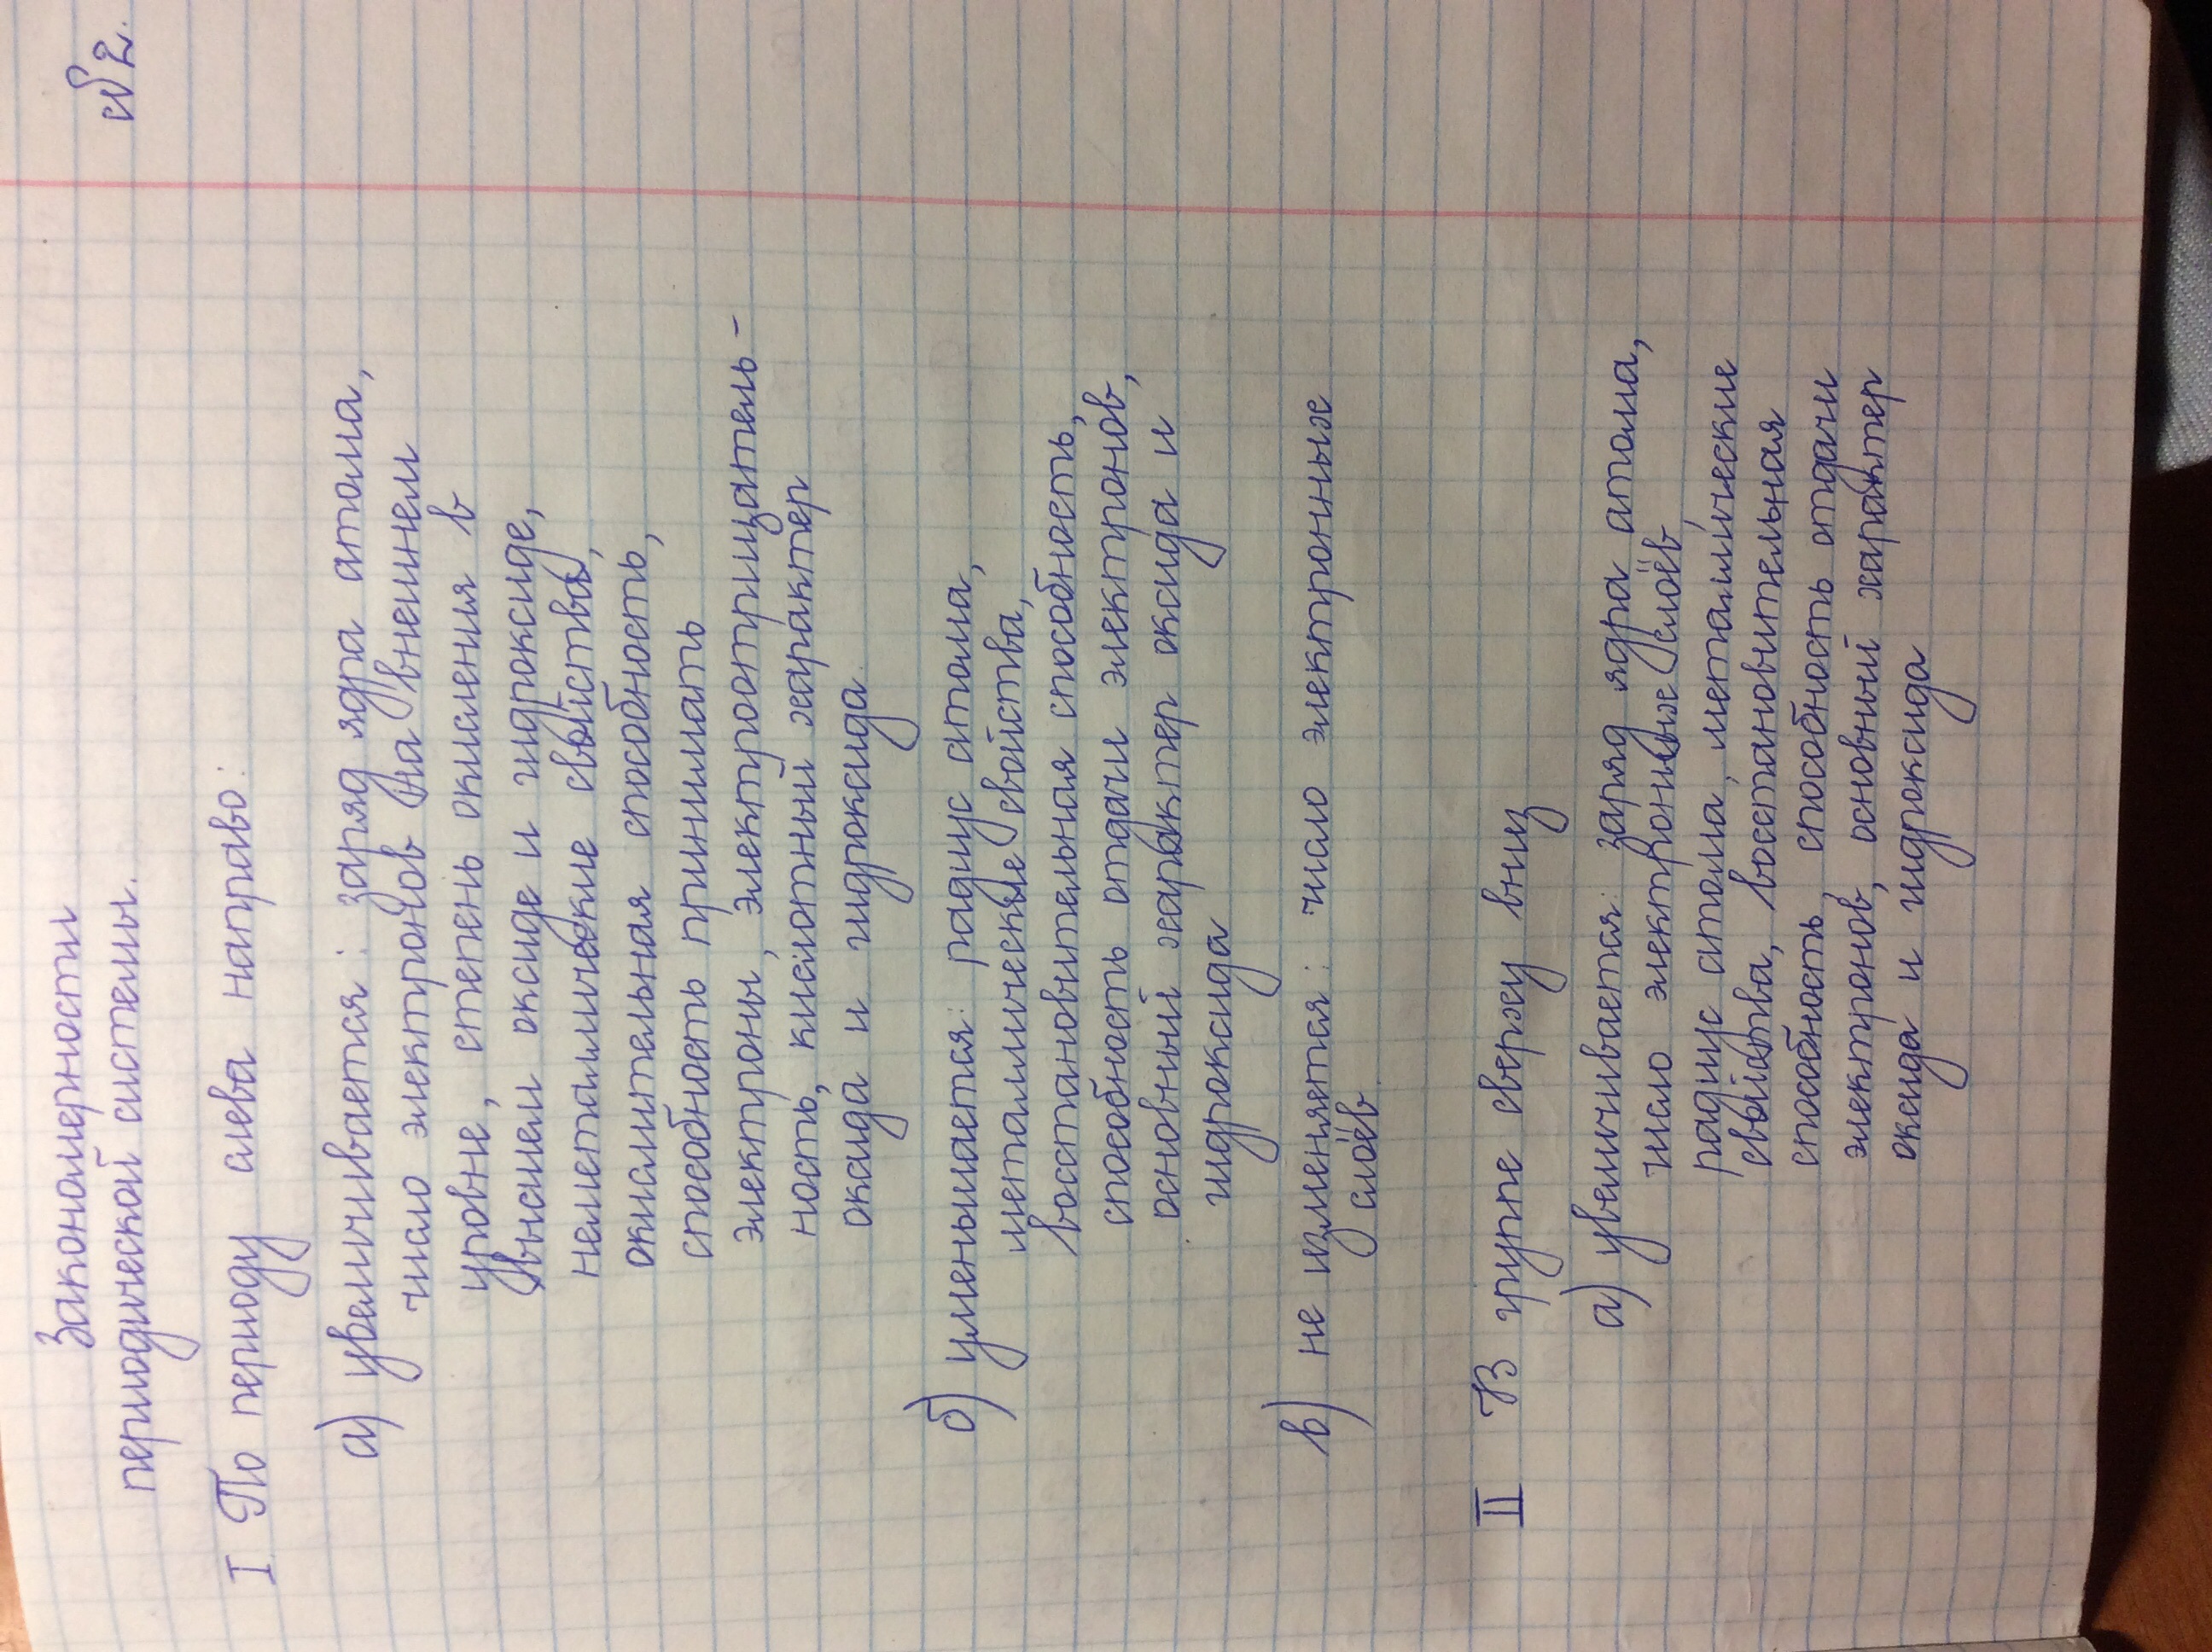 №2.
Закономерности
периодической системы.
I По периоду слева направо:
а) увеличивается: заряд ядра атома,
число электронов на внешнем
уровне, степень окисления в
высшем оксиде и гидроксиде,
неметаллические свойства,
окислительная способность,
способность принимать
электроны, электроотрицатель-
ность, кислотный характер
оксида и гидроксида.
б) уменьшается: радиус атома,
металлические свойства,
восстановительная способность,
способность отдачи электронов,
основный характер оксида и
гидроксида
в) не изменяется: число электронных
слоёв.
II В групе сверху вниз
а) увеличивается: заряд ядра атома,
число электронных слоёв
радиус атома, металлические
свойства, восстановительная
способность, способность отдачи
электронов, основный характер
оксида и гидроксида